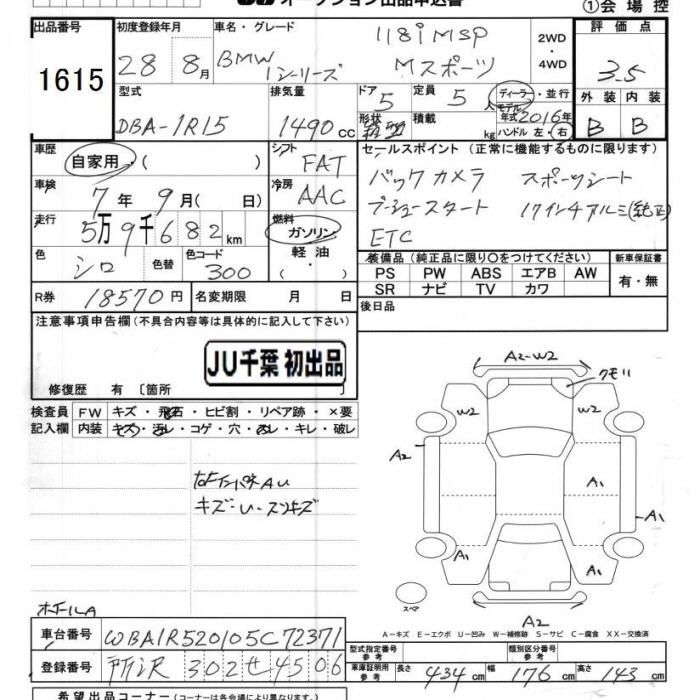 オークション出品申込書
①会場控
出品番号 1615
初度登録年月 28年 8月
車名・グレード BMW 1シリーズ 118i MSP Mスポーツ
2WD・4WD
評価点 3.5
外装 内装
B B
型式 DBA-1R15
排気量 1490cc
ドア 5
形状
定員 5人
積載 kg
ディーラー・並行
モデル年式 2016年
ハンドル 左・右
車歴 自家用・( )
シフト FAT
セールスポイント (正常に機能するものに限ります)
バックカメラ スポーツシート
プッシュスタート 17インチアルミ(純正)
ETC
車検 7年 9月( 日)
冷房 AAC
走行 5万9千682km
燃料 ガソリン・軽油・( )
色 シロ
色替
色コード 300
装備品 (純正品に限り○をつけてください)
新車保証書
PS PW ABS エアB AW
有・無
SR ナビ TV カワ
R券 18570円
名変期限 月 日
後日品
注意事項申告欄 (不具合内容等は具体的に記入して下さい)
JU千葉 初出品
修復歴 有 〔箇所 〕
検査員記入欄
FW キズ・飛石・ヒビ割・リペア跡・×要
内装 キズ・汚レ・コゲ・穴・ヌレ・キレ・破レ
A2-W2
W2 W2
A2
A1
A1
A1 A1
スペア
A2
A-キズ E-エクボ U-凹み W-補修跡 S-サビ C-腐食 XX-交換済
ホイールA
車台番号 WBA1R520105C72371
登録番号 所沢 302 せ 4506
型式指定番号 参考
類別区分番号 参考
車庫証明用 参考
長さ 434cm 幅 176cm 高さ 143cm
希望出品コーナー (コーナーは各会場により異なります。)